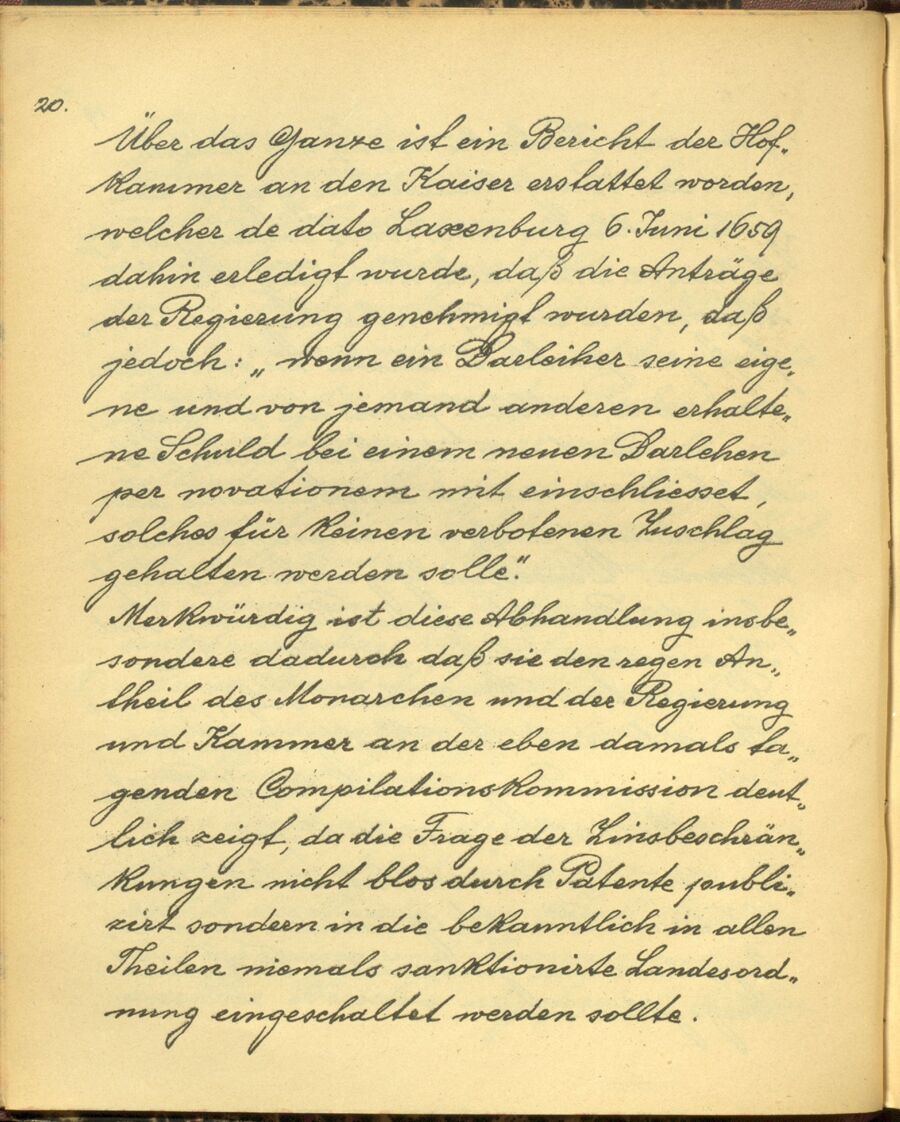 20.
Über das Ganze ist ein Bericht der Hof„
kammer an den Kaiser erstattet worden,
welcher de dato Laxenburg 6. Juni 1659
dahin erledigt wurde, daß die Anträge
der Regierung genehmigt wurden, daß
jedoch: „wenn ein Darleiher seine eige„
ne und von jemand anderen erhalte„
ne Schuld bei einem neuen Darlehen
per novationem mit einschliesset,
solches für keinen verbotenen Zuschlag
gehalten werden solle".
Merkwürdig ist diese Abhandlung insbe„
sondere dadurch daß sie den regen An„
theil des Monarchen und der Regierung
und Kammer an der eben damals ta„
genden Compilationskommission deut„
lich zeigt, da die Frage der Zinsbeschrän„
kungen nicht blos durch Patente publi„
zirt sondern in die bekanntlich in allen
Theilen niemals sanktionirte Landesord„
nung eingeschaltet werden sollte.